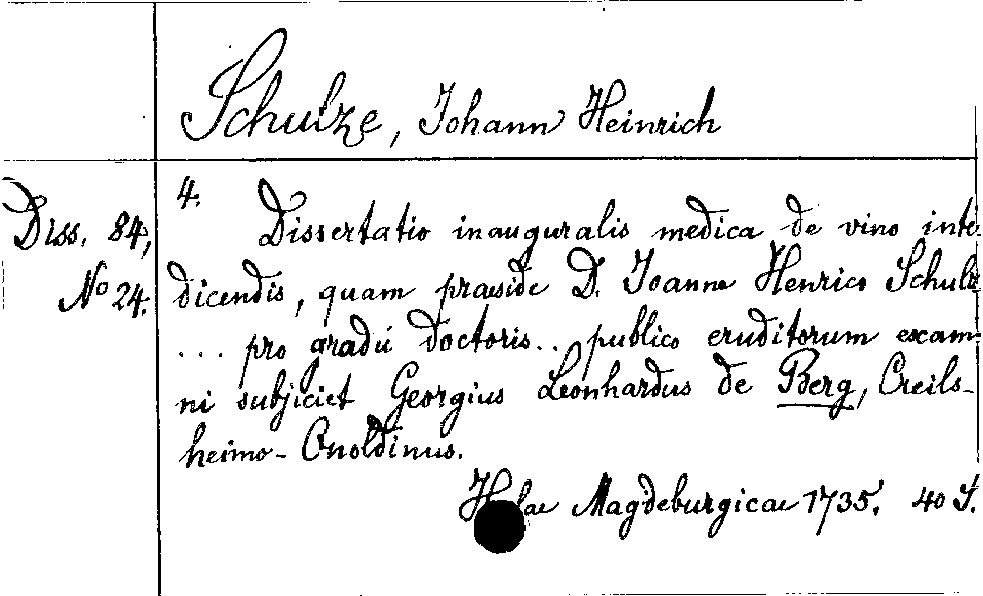 Schulze, Johann Heinrich
Diss. 84,
No 24.
4.
Dissertatio inauguralis medica de vino inter
dicendis, quam praeside D. Joanne Henrico Schulze
... pro gradú doctoris.. publico eruditorum exami
ni subjiciet Georgius Leonhardus de Berg, Creils-
heimo-Onoldinus.
Halae Magdeburgicae 1735. 40 S.